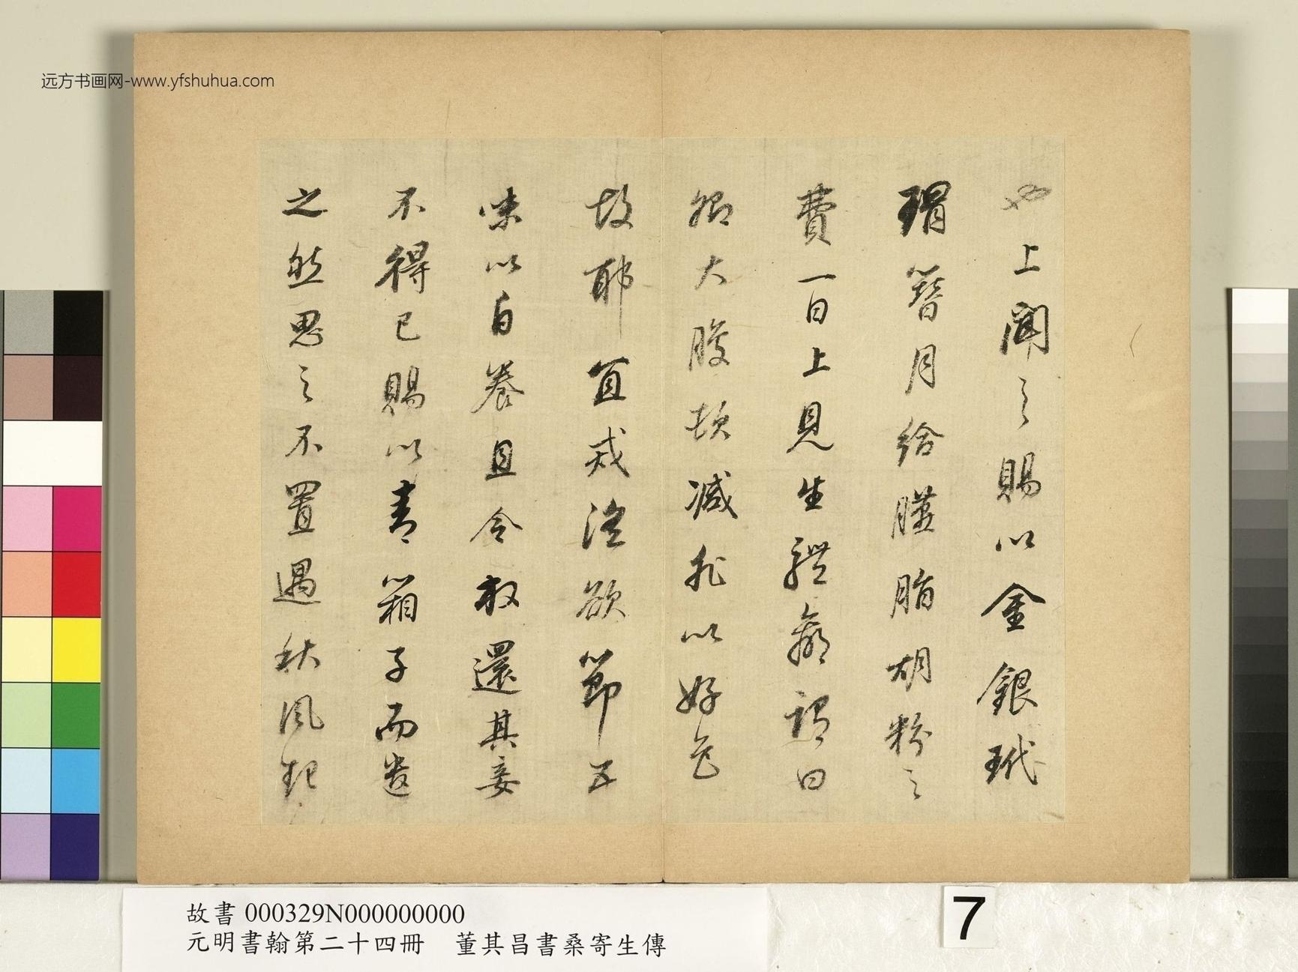 远方书画网-www.yfshuhua.com
也上聞之賜以金銀玳
瑁簪月給臙脂胡粉之
費一日上見生體羸謂曰
卿大腹頓減非以好色
故耶宜戒淫欲節五
味以自養且令放還其妾
不得已賜以青箱子而遣
之然思之不置過秋風起
故書 000329N000000000
元明書翰第二十四冊 董其昌書桑寄生傳
7